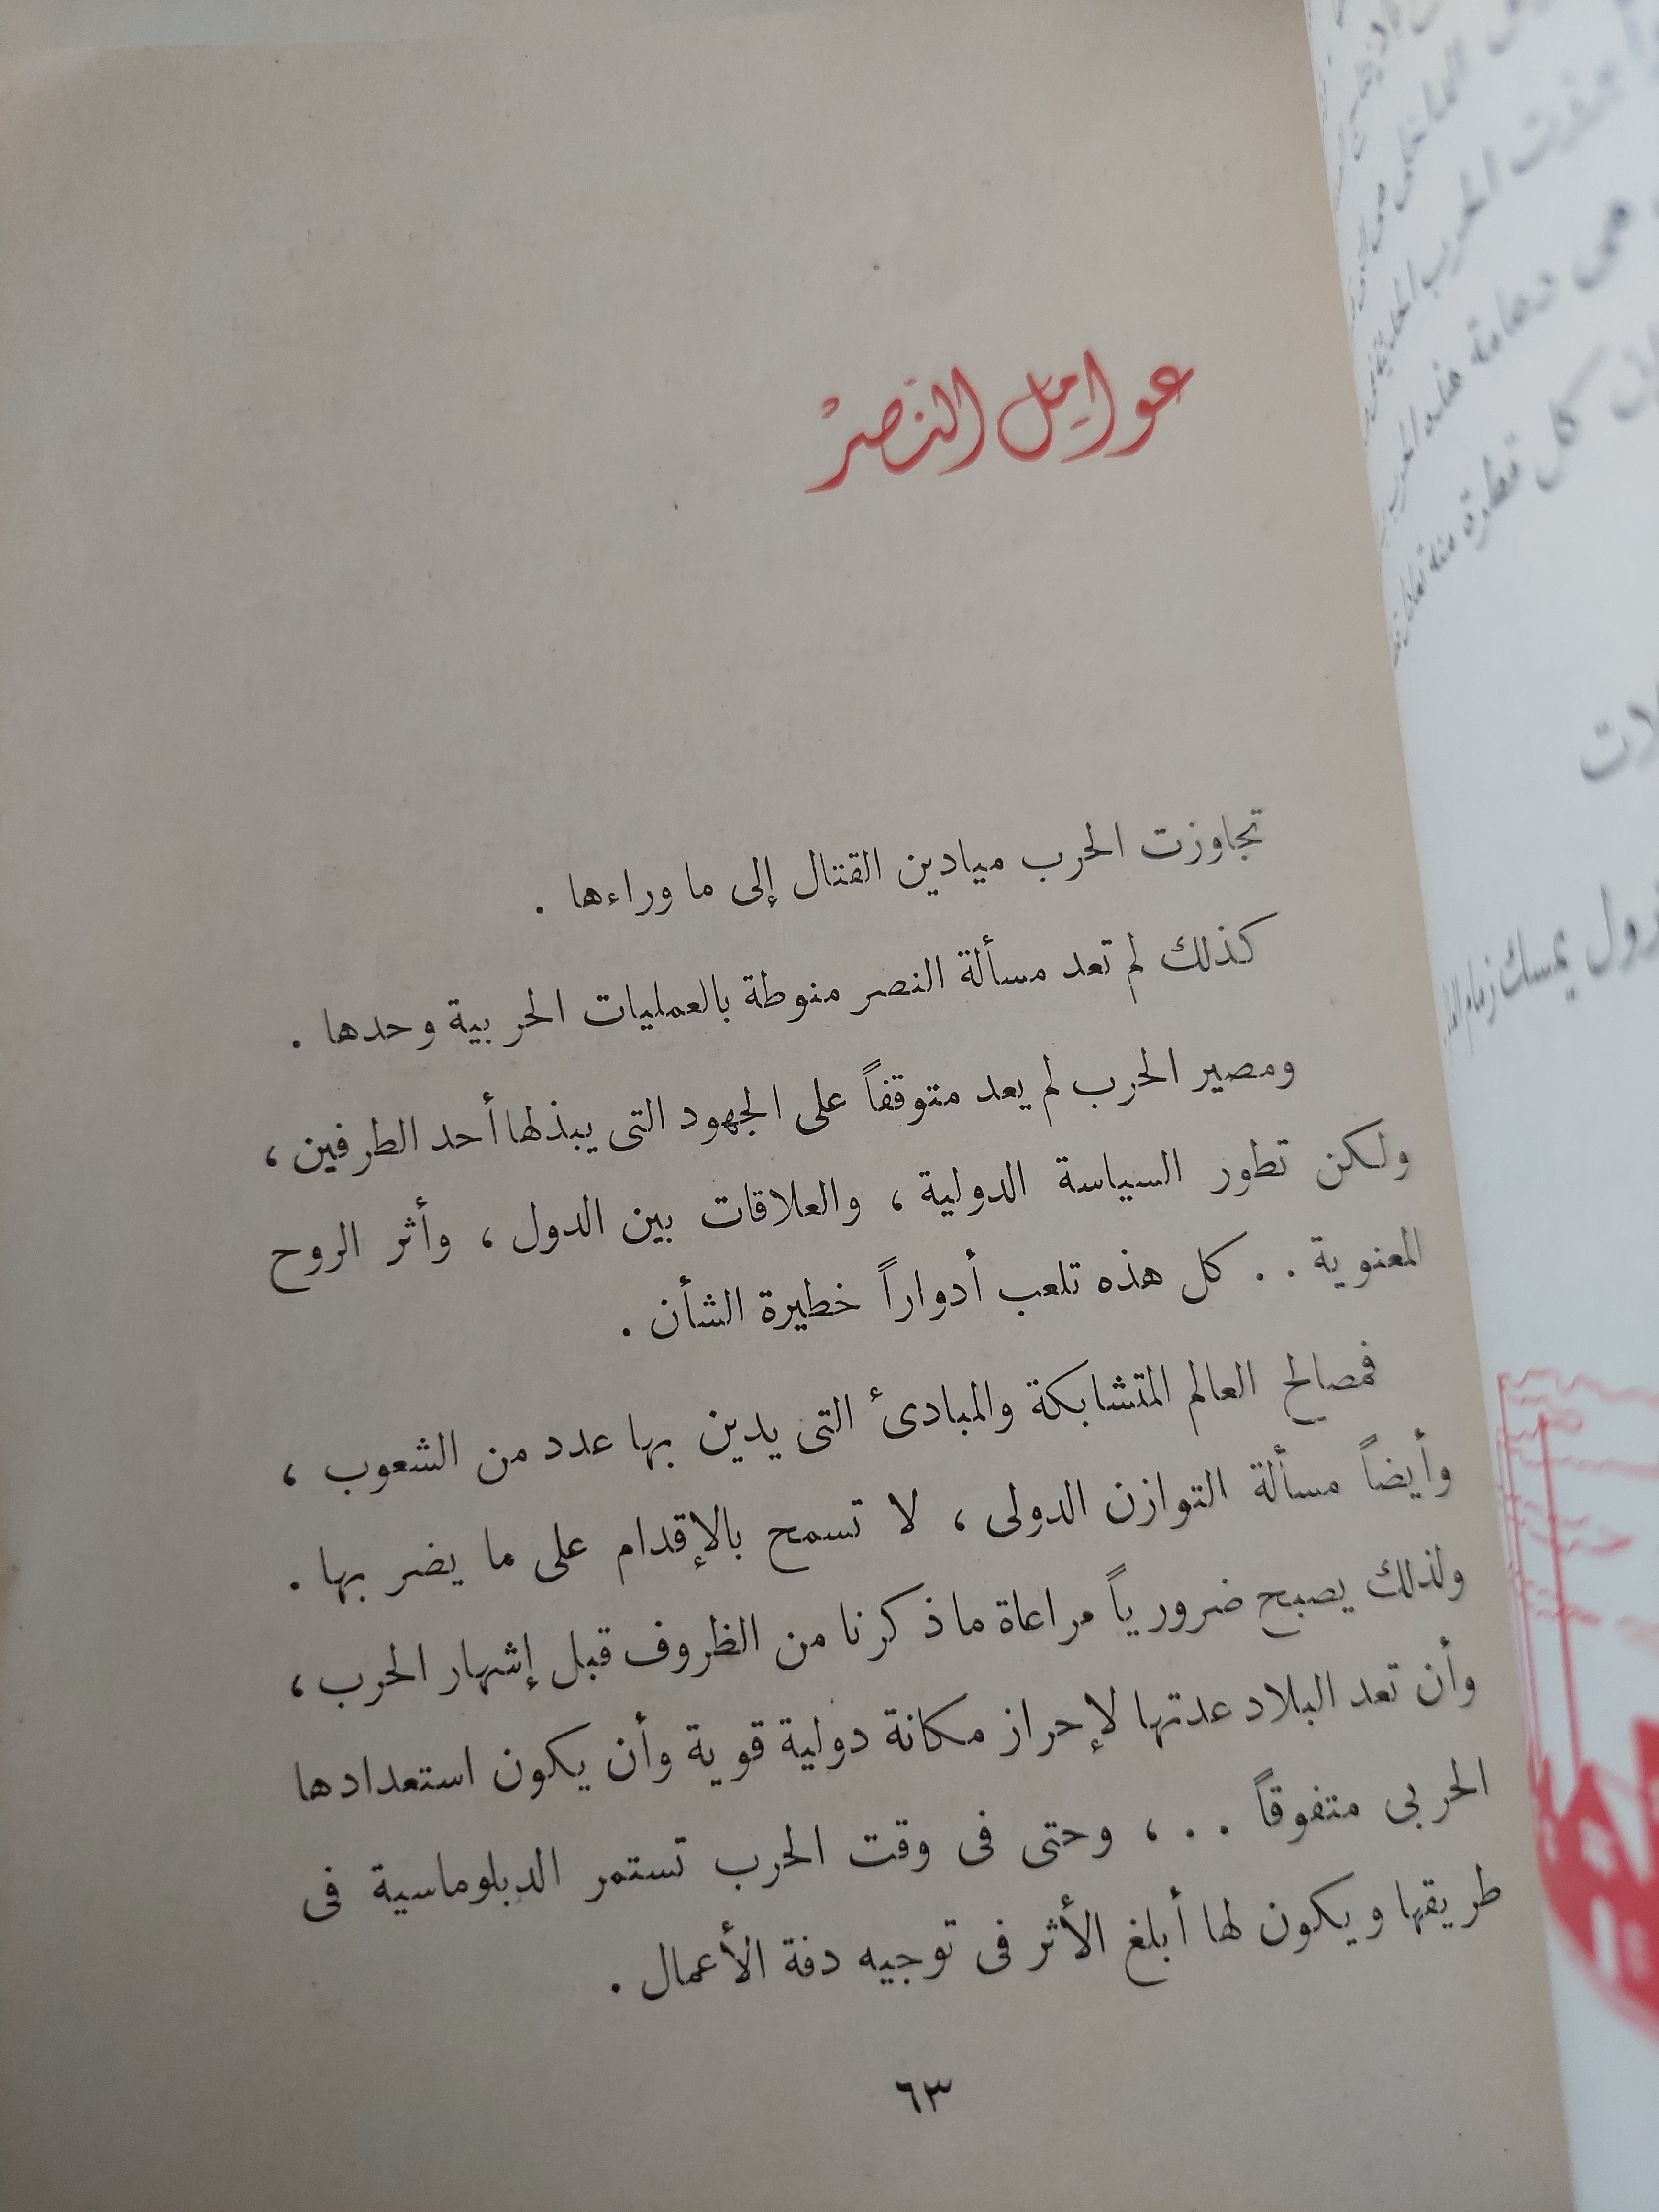 عوامل النصر
تجاوزت الحرب ميادين القتال إلى ما وراءها .
كذلك لم تعد مسألة النصر منوطة بالعمليات الحربية وحدها .
ومصير الحرب لم يعد متوقفاً على الجهود التى يبذلها أحد الطرفين ،
ولكن تطور السياسة الدولية ، والعلاقات بين الدول ، وأثر الروح
المعنوية . . كل هذه تلعب أدواراً خطيرة الشأن .
فمصالح العالم المتشابكة والمبادئ التى يدين بها عدد من الشعوب ،
وأيضاً مسألة التوازن الدولى ، لا تسمح بالإقدام على ما يضر بها .
ولذلك يصبح ضرورياً مراعاة ما ذكرنا من الظروف قبل إشهار الحرب ،
وأن تعد البلاد عدتها لإحراز مكانة دولية قوية وأن يكون استعدادها
الحربى متفوقاً . . ، وحتى فى وقت الحرب تستمر الدبلوماسية فى
طريقها ويكون لها أبلغ الأثر فى توجيه دفة الأعمال .
٦٣
الحرب
دعامة هذه الحرب
كل قطرة منه
يمسك زمام